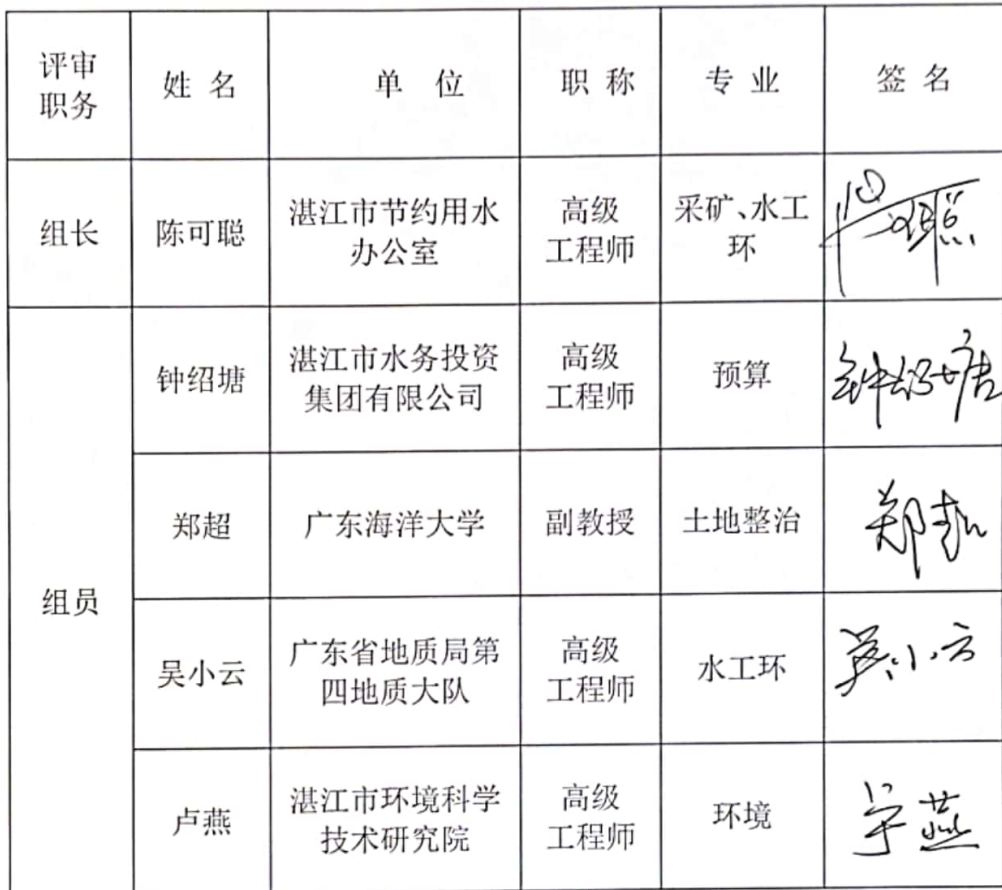 评审
职务
姓名
单位
职称
专业
签名
组长
陈可聪
湛江市节约用水
办公室
高级
工程师
采矿、水工
环
组员
钟绍塘
湛江市水务投资
集团有限公司
高级
工程师
预算
钟绍塘
郑超
广东海洋大学
副教授
土地整治
郑超
吴小云
广东省地质局第
四地质大队
高级
工程师
水工环
吴小云
卢燕
湛江市环境科学
技术研究院
高级
工程师
环境
卢燕